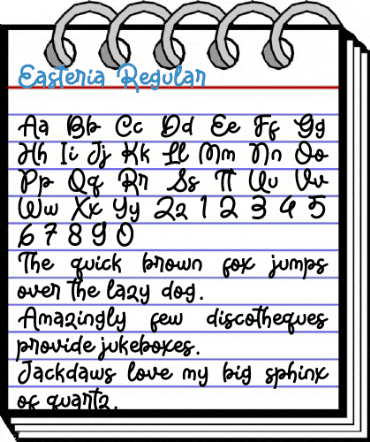 Easteria Regular
Aa Bb Cc Dd Ee Ff Gg
Hh Ii Jj Kk Ll Mm Nn Oo
Pp Qq Rr Ss Tt Uu Vv
Ww Xx Yy Zz 1 2 3 4 5
6 7 8 9 0
The quick brown fox jumps
over the lazy dog.
Amazingly few discotheques
provide jukeboxes.
Jackdaws love my big sphinx
of quartz.